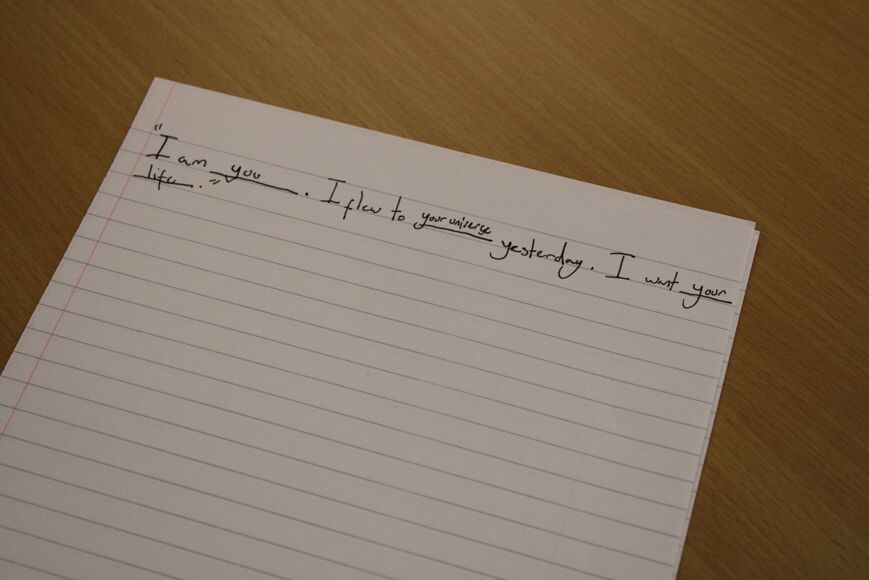 "I am you. I flew to your universe yesterday. I want your
life."